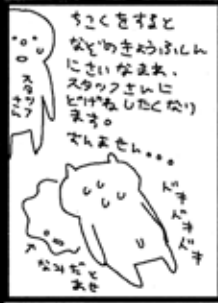 ちこくをすると
なぞのきょうふしん
にさいなまれ、
スタッフさんに
どげねしたくなり
ます。
すんません...
スタッフさん
ドキドキドキ
なみだと
あせ